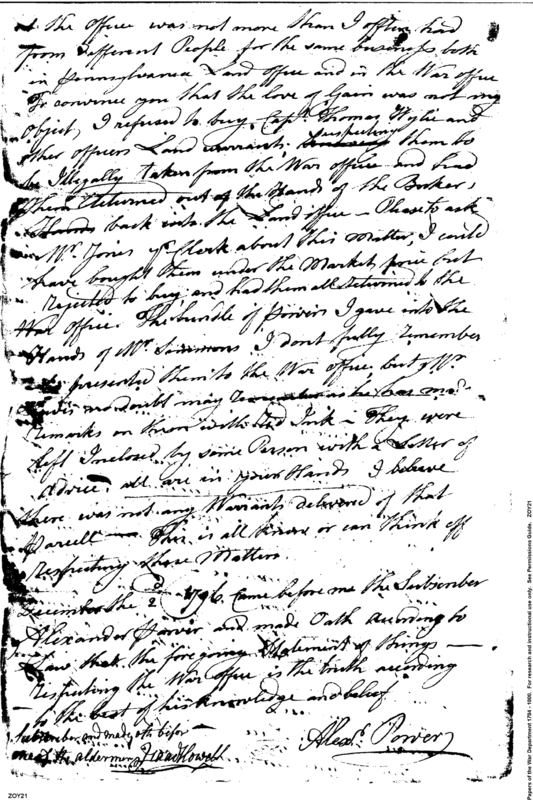 the office was not more than I often had
from different People for the same business both
in Pennsylvania Land office and in the War office
To convince you that the love of Gain was not my
object, I refused to buy Capt. Thomas Wylie and
other officers Land warrants suspecting them to
be Illegally taken from the War office and had
them returned out of the Hands of the Broker,
Hands back into the Land office – Please to ask
Mr. Jones ye Clerk about this Matter, I could
have bought them under the Market price but
rejected to buy and had them all returned to the
War office. The bundle of Powers I gave into the
Hands of Mr. Simmons I dont fully remember
presented them to the War office but Mr.
no doubt may as he has
remarks on them with Red Ink – They were
left Inclosed by some Person with a Letter of
Advice. all are in your Hands I believe
there was not any Warrants delivered of that
Parcell – This is all I know or can think off
respecting these Matters
December the 2d 1796 Came before me the Subscriber
Alexander Power and made Oath according to
Law that the foregoing Statement of things –
respecting the War office is the truth according
to the best of his knowledge and belief
Subscriber and made oth before
one of the aldermen
Alexr. Power
ZOY21
Papers of the War Department 1784 - 1800. For research and instructional use only. See Permissions Guide. ZOY21